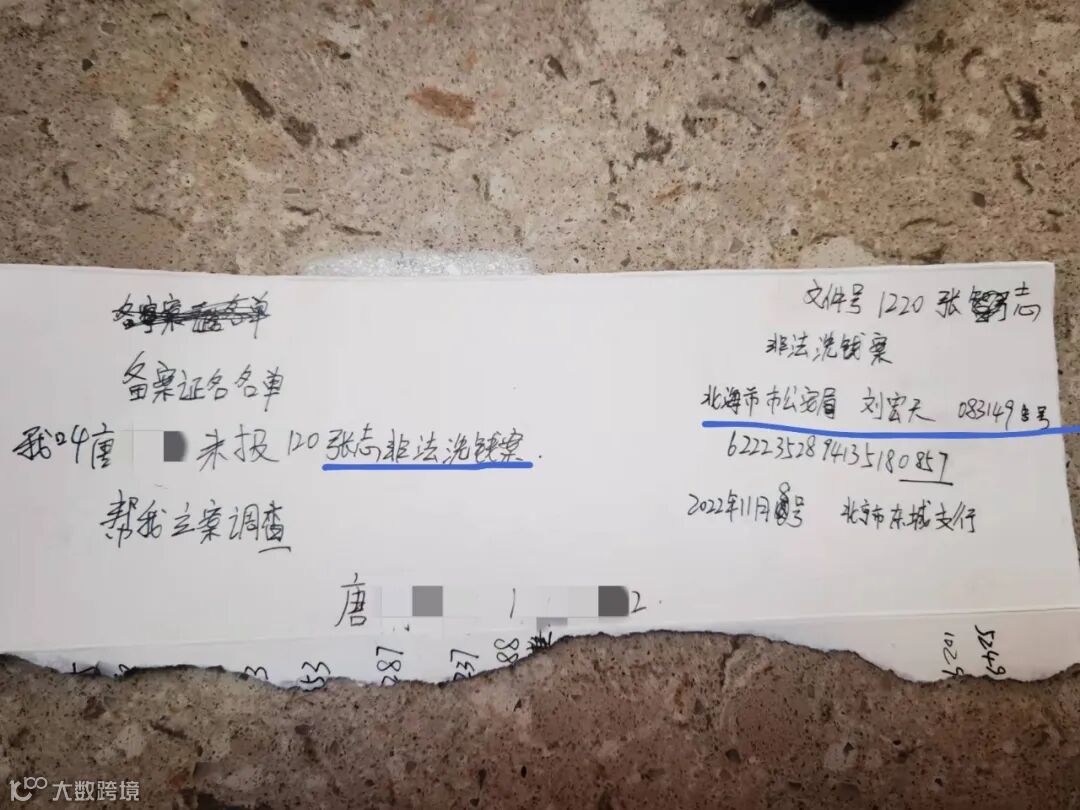 备案证名名单
我叫唐 来报120张志非法洗钱案.
帮我立案调查
唐 1 2.
文件号1220张 志
非法洗钱案
北海市市公安局 刘宏天 083149警号
6222352894135180857
2022年11月8号 北京市东城支行
53
287
237
88
5249
1029
大数跨境